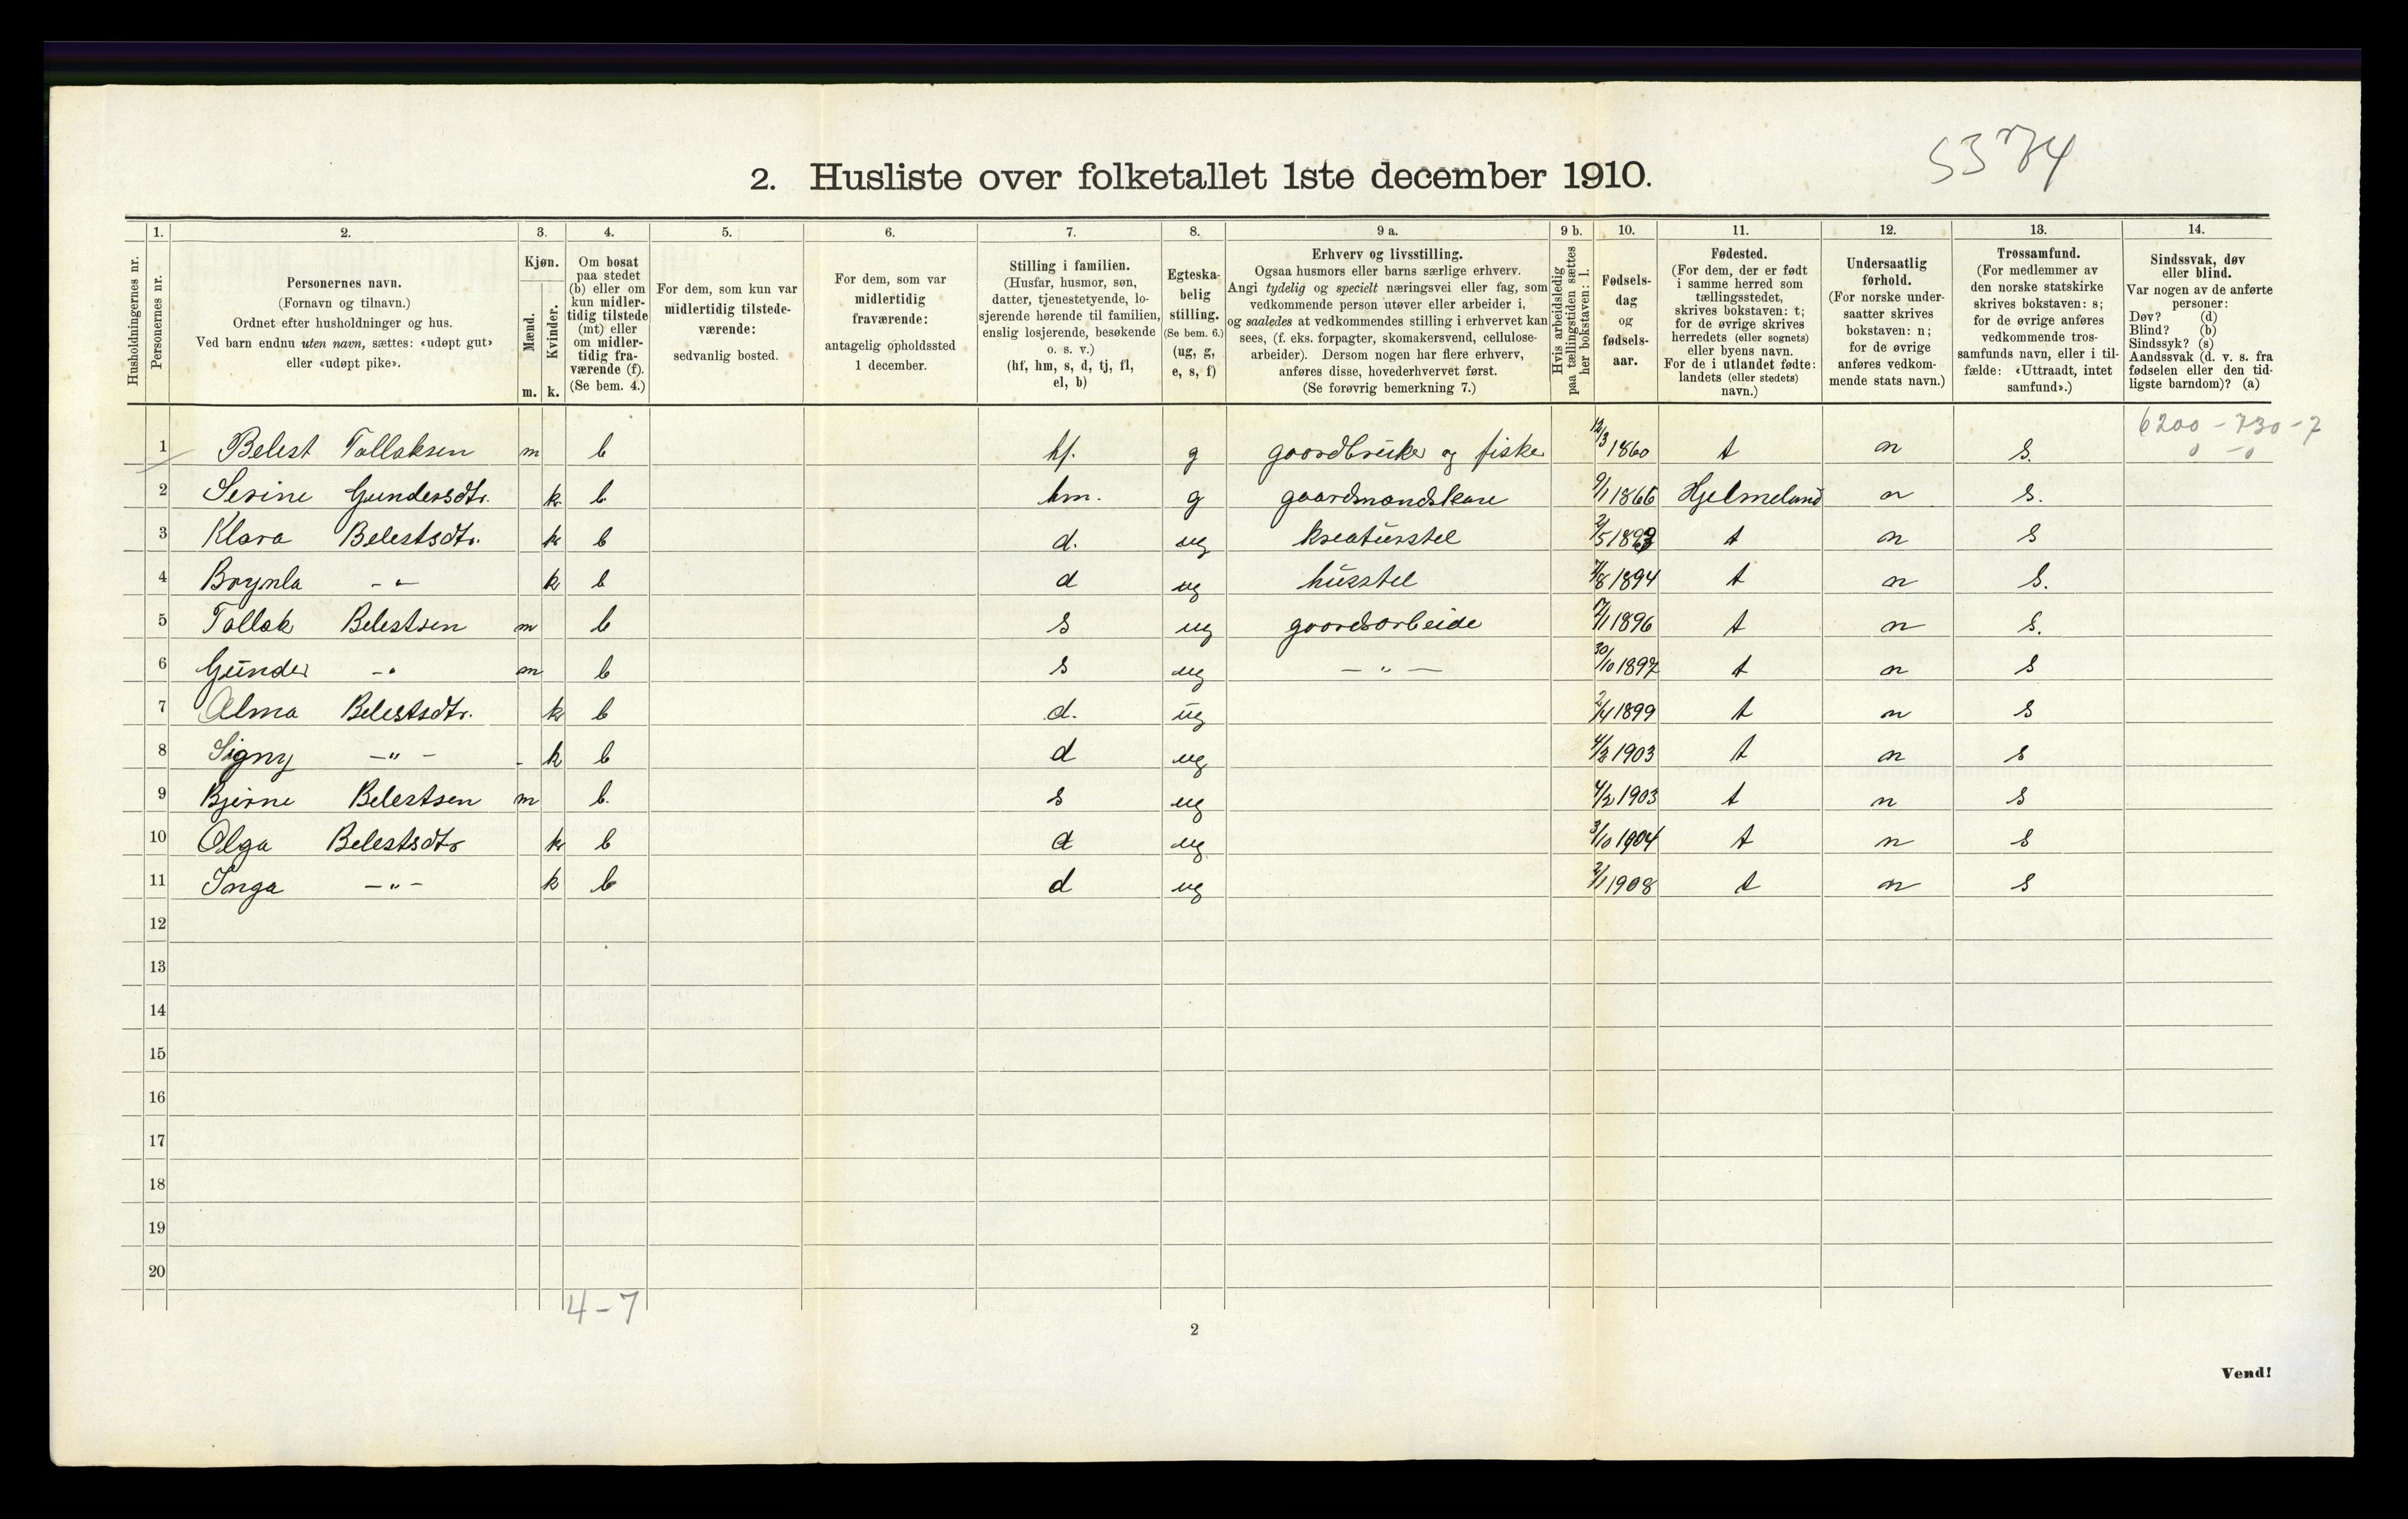 53 74
2. Husliste over folketallet 1ste december 1910.
Husholdningernes nr.
1.
Personernes nr.
2.
Personernes navn.
(Fornavn og tilnavn.)
Ordnet efter husholdninger og hus.
Ved barn endnu uten navn, sættes: «udøpt gut»
eller «udøpt pike».
3.
Kjøn.
Mænd.
Kvinder.
m. k.
4.
Om bosat
paa stedet
(b) eller om
kun midler-
tidig tilstede
(mt) eller
om midler-
tidig fra-
værende (f).
(Se bem. 4.)
5.
For dem, som kun var
midlertidig tilstede-
værende:
sedvanlig bosted.
6.
For dem, som var
midlertidig
fraværende:
antagelig opholdssted
1 december.
7.
Stilling i familien.
(Husfar, husmor, søn,
datter, tjenestetyende, lo-
sjerende hørende til familien,
enslig losjerende, besøkende
o. s. v.)
(hf, hm, s, d, tj, fl,
el, b)
8.
Egteska-
belig
stilling.
(Se bem. 6.)
(ug, g,
e, s, f)
9 a.
Erhverv og livsstilling.
Ogsaa husmors eller barns særlige erhverv.
Angi tydelig og specielt næringsvei eller fag, som
vedkommende person utøver eller arbeider i,
og saaledes at vedkommendes stilling i erhvervet kan
sees, (f. eks. forpagter, skomakersvend, cellulose-
arbeider). Dersom nogen har flere erhverv,
anføres disse, hovederhvervet først.
(Se forøvrig bemerkning 7.)
9 b.
Hvis arbeidsledig
paa tællingstiden sættes
her bokstaven: l.
10.
Fødsels-
dag
og
fødsels-
aar.
11.
Fødested.
(For dem, der er født
i samme herred som
tællingsstedet,
skrives bokstaven: t;
for de øvrige skrives
herredets (eller sognets)
eller byens navn.
For de i utlandet fødte:
landets (eller stedets)
navn.)
12.
Undersaatlig
forhold.
(For norske under-
saatter skrives
bokstaven: n;
for de øvrige
anføres vedkom-
mende stats navn.)
13.
Trossamfund.
(For medlemmer av
den norske statskirke
skrives bokstaven: s;
for de øvrige anføres
vedkommende tros-
samfunds navn, eller i til-
fælde: «Uttraadt, intet
samfund».)
14.
Sindssvak, døv
eller blind.
Var nogen av de anførte
personer:
Døv? (d)
Blind? (b)
Sindssyk? (s)
Aandssvak (d. v. s. fra
fødselen eller den tid-
ligste barndom)? (a)
6200 - 730 - 7
0 - 0
1 Belest Tollaksen m b hf. g gaardbruker og fisker 12/3 1860 t n s.
2 Serine Gundersdtr. k b hm. g gaardmandskone 9/1 1866 Hjelmeland n s.
3 Klara Belestsdtr. k b d. ug kreaturstel 2/5 1893 t n s
4 Brynla - " - k b d ug husstel 7/8 1894 t n s.
5 Tollak Belestsen m b s ug gaardsarbeide 7/1 1896 t n s.
6 Gunder - " m b s ug - " - 30/10 1897 t n s
7 Alma Belestsdtr. k b d. ug 2/4 1899 t n s
8 Signy - " - - k b d ug 4/2 1903 t n s
9 Bjerne Belestsen m b. s ug 4/2 1903 t n s
10 Olga Belestsdtr k b d ug 3/10 1904 t n s
11 Inga - " - k b d ug 2/1 1908 t n s
12
13
14
15
16
17
18
19
20
4 - 7
2
Vend!